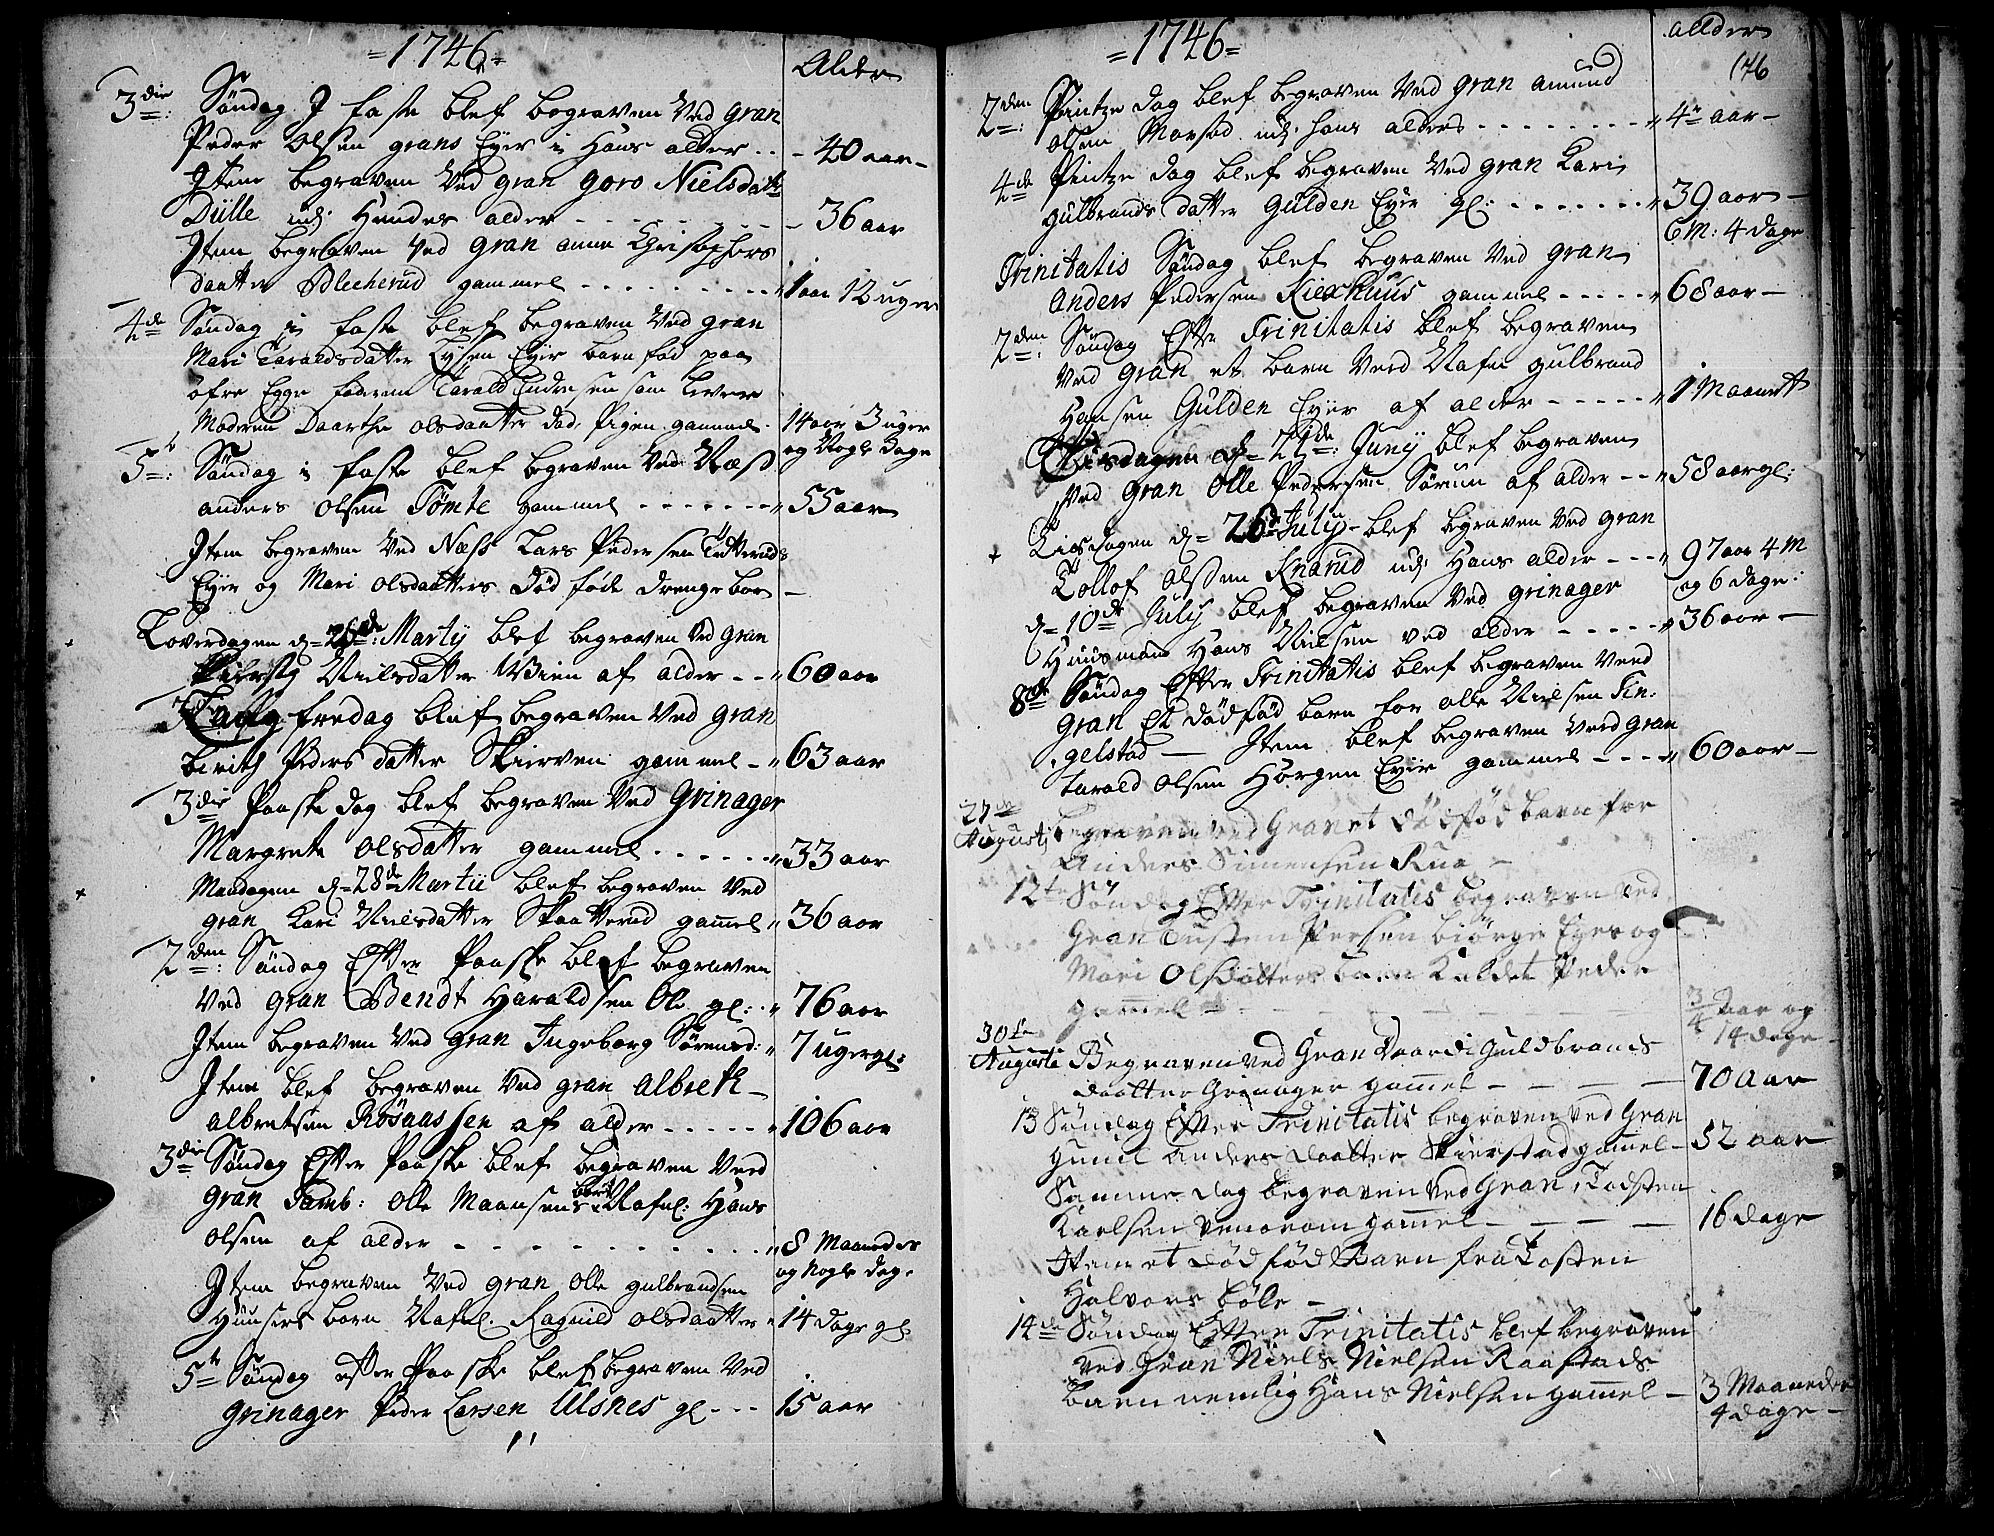 =1746=
Alder
3die Søndag J faste blef begraven Ved gran
Peder Olsen grans Eyer i Hans alder . . - 40 aar -
Jtem begraven Ved gran goro Nielsdatt
Dülle udj Hendes alder - - - - - - 36 aar
Jtem begraven Ved gran anne Christophers
daatter Blecherud gammel - - - - - 1 aar 12 uger
4de Søndag i faste blef begraven Ved gran
Mari Taraldsdatter Lysen Eyer barnfød paa
øfre Egge faderen Tarald Endresen som lever
Moderen Daarthe olsdaatter død, Pigen gammel. 14 aar 3 uger
og Nogle dage
5te Søndag i faste blef begraven Ved Næss
anders Olsen Tømte gammel - - - - - - 55 aar
Jtem begraven Ved Næss Lars Pedersen Tøtteruds
Eyer og Mari olsdaatters Død føde drenge barn -
Løverdagen d= 26de: Martij blef begraven Ved gran
Kiersty Nielsdatter Wien af alder - - 60 aar
Lang fredag blef begraven Ved gran
birith Peders datter Skierven gammel - 63 aar
3die Paaske dag blef begraven Ved Grinager
Margrete olsdatter gammel . . . . . . 33 aar
Mandagen d= 28de Martii blef begraven Ved
gran Kari Nielsdatter Skaatterud gam̄el 36 aar
2den: Søndag Efter Paaske blef begraven
Ved gran Bendt Haraldsen Ole gl: . 76 aar
Jtem begraven Ved gran Jngeborg Sørensd: 7 uger gl:
Jtem blef begraven Ved gran albreth
albretsen Rosaassen af alder - - - - - 106 aar
3die Søndag Efter Paaske blef begraven Ved
gran Tamb: Olle Maansens barn Nafnl: Hans
olsen af alder - - - - - - - - - - 8 Maaneder
og Nogle dage
Jtem begraven Ved gran olle gulbrandsen
Hunsets barn Nafnl. Ragnild olsdaatter 14 dage gl
5te Søndag efter Paaske blef begraven Ved
grinager Peder Larsen Ulsnes gl - - - 15 aar
=1746=
allder
146
2den: Pintze dag blef begraven Ved gran amund
olsen Morstad udj hans alders - - - - - - - 4de aar -
4de Pintze dag blef begraven Ved gran Kari
gulbrands datter Gulden Eyer gl: - - - - - - - 39 aar -
6 M: 4 dage
Trinitatis Søndag blef begraven Ved gran
Anders Pedersen Kiexhuus gammel - - - - - 68 aar -
2den: Søndag Efter Trinitatis blef begraven
Ved gran et barn Ved Nafn gulbrand
Hansen Gulden Eyer af alder - - - - - 1 Maanett
Tirsdagen d= 21de: Junij blef begraven
Ved gran Olle Pedersen Sørum af alder - - 58 aar gl:
Tirsdagen d= 26de July blef begraven Ved gran
Tollof Olsen Knarud udj Hans alder - - - 97 aar 4 M
og 6 dage:
d= 10de July blef begraven Ved grinager
Huusmand Hans Nielsen ved alder - - - - - 36 aar -
8de Søndag Efter Trinitatis blef begraven Ved
gran Et dødfød barn for olle Nielsen Tin-
gelstad - Jtem blef begraven Ved gran
tarald olsen Horgen Eyer gammel - - - - 60 aar -
27de
Augusti begraven ved Gran et dødfød barn for
Anders Simensen Rua -
12te Søndag Efter Trinitatis begraven ved
Gran Tosten Persen biørge Eyes og
Mari Olsdatters barn Kaldet Peder
gam̄el - - - - - - - 3/4 aar og
14 dage -
30te
Augusti Begraven ved Gran Daardi Guldbrands
daatter Grinager gam̄el - - - - 70 aar
13 Søndag Efter Trinitatis begraven ved Gran
Gunil Anders daatter Skierstad gam̄el - 52 aar
Samme dag begraven ved Gran, Tosten
Karlsen Venoram gam̄el - - - - 16 dage
Item et dødfød Barn fra Tosten
Halvors bøle -
14de Søndag Efter Trinitatis blef begraven
ved Gran Niels Nielsen Raastads
barn nemlig Hans Nielsen gam̄el - 3 Maaneder
4 dage -